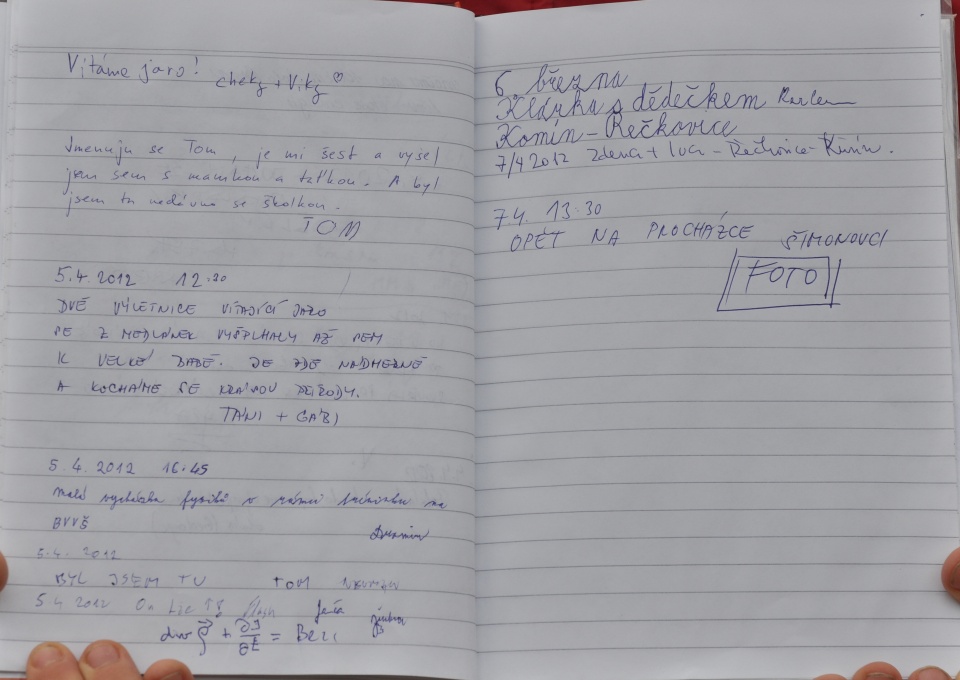 Vítáme jaro!
cheky + Viky ♡
Jmenuju se Tom, je mi šest a vyšel
jsem sem s mamkou a taťkou. A byl
jsem tu nedávno se školkou.
TOM
5.4.2012 12.20
DVĚ VÝLETNICE VÍTAJÍCÍ JARO
SE Z MEDLÁNEK VYŠPLHALY AŽ SEM
K VELKÉ BABĚ. JE ZDE NÁDHERNĚ
A KOCHÁME SE KRÁSOU PŘÍRODY.
TÁNI + GÁBI
5.4.2012 16.45
malá vycházka fyziků v rámci na
BVVŠ
5.4.2012
BYL JSEM TU TOM
5.4 2012
div + ∂ρ/∂t =
6. března
Klárka s dědečkem Karlem
Komín - Řečkovice
7/4 2012 Zdena + Luci - Řečkovice - Kuřim.
7.4. 13.30
OPĚT NA PROCHÁZCE ŠIMONOVCI
FOTO